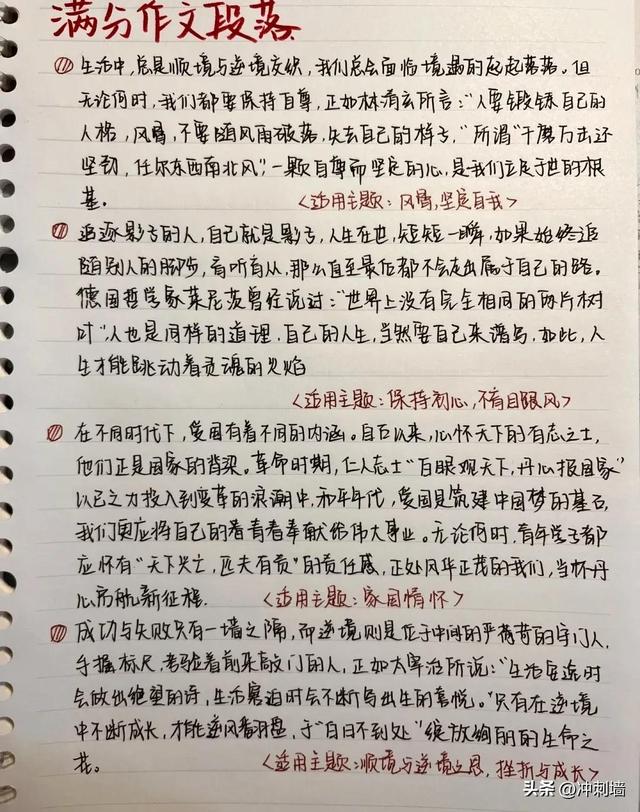 满分作文段落
生活中,总是顺境与逆境交织,我们总会面临境遇的起起落落。但
无论何时,我们都要保持自尊,正如林清玄所言:"人要锻铸自己的
人格,风骨,不要随风雨破落,失去自己的样子,"所谓"千磨万击还
坚劲,任尔东西南北风",一颗自尊而坚定的心,是我们立足于世的根
基。
<适用主题:风骨,坚定自我>
追逐影子的人,自己就是影子,人生在世,短短一瞬,如果始终追
随别人的脚步,盲听盲从,那么直至最后都不会走出属于自己的路。
德国哲学家莱尼茨曾经说过:"世界上没有完全相同的两片树
叶"人也是同样的道理,自己的人生,当然要自己来谱写,如此,人
生才能跳动着灵魂的火焰
<适用主题:保持初心,不盲目跟风>
在不同时代下,爱国有着不同的内涵。自古以来,心怀天下的有志之士,
他们正是国家的脊梁。革命时期,仁人志士"冷眼观天下,丹心报国家"
以己之力投入到变革的浪潮中,和平年代,爱国是筑建中国梦的基石,
我们更应将自己的青春奉献给伟大事业。无论何时,青年学子都
应怀有"天下兴亡,匹夫有责"的责任感,正处风华正茂的我们,当怀丹
心而航新征程.
<适用主题:家国情怀>
成功与失败只有一墙之隔,而逆境则是位于中间的严苛的守门人,
手握标尺,考验着前来敲门的人,正如太宰治所说:"生活安逸时
会做出绝望的诗,生活窘迫时会不断写出生的喜悦。"只有在逆境
中不断成长,才能逆风翻盘,于"白日不到处"绽放绚丽的生命之
花。
<适用主题:顺境与逆境之思,挫折与成长>
头条@冲刺墙